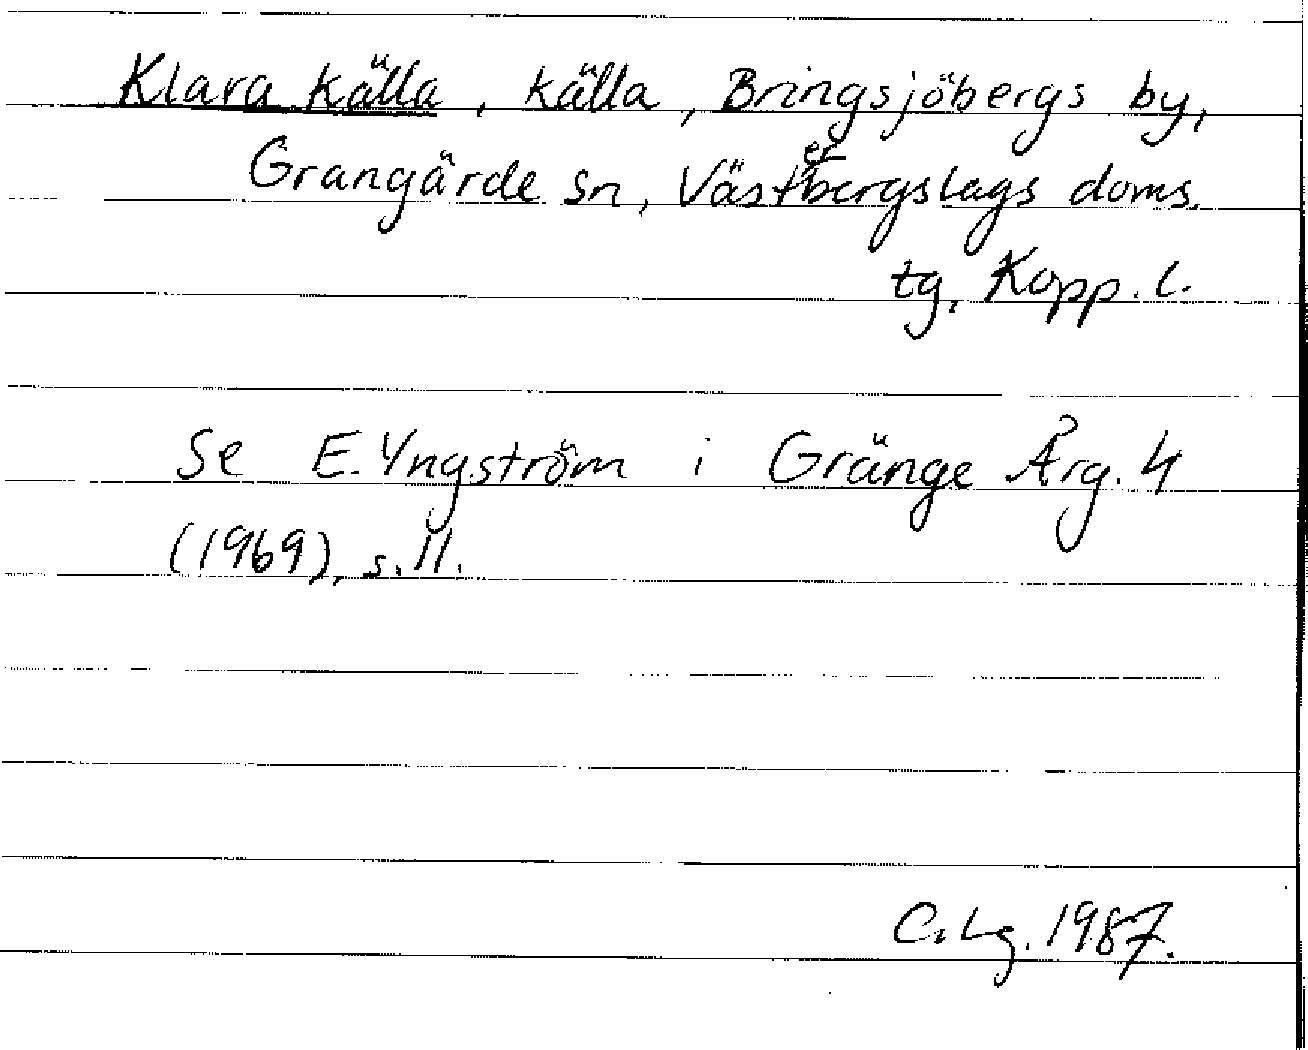 Klara källa, källa, Bringsjöbergs by,
Grangärde sn, Västerbergslags doms.
tg, Kopp. l.
Se E. Yngström i Gränge Årg. 4
(1969), s. 11.
C. Lg. 1987.